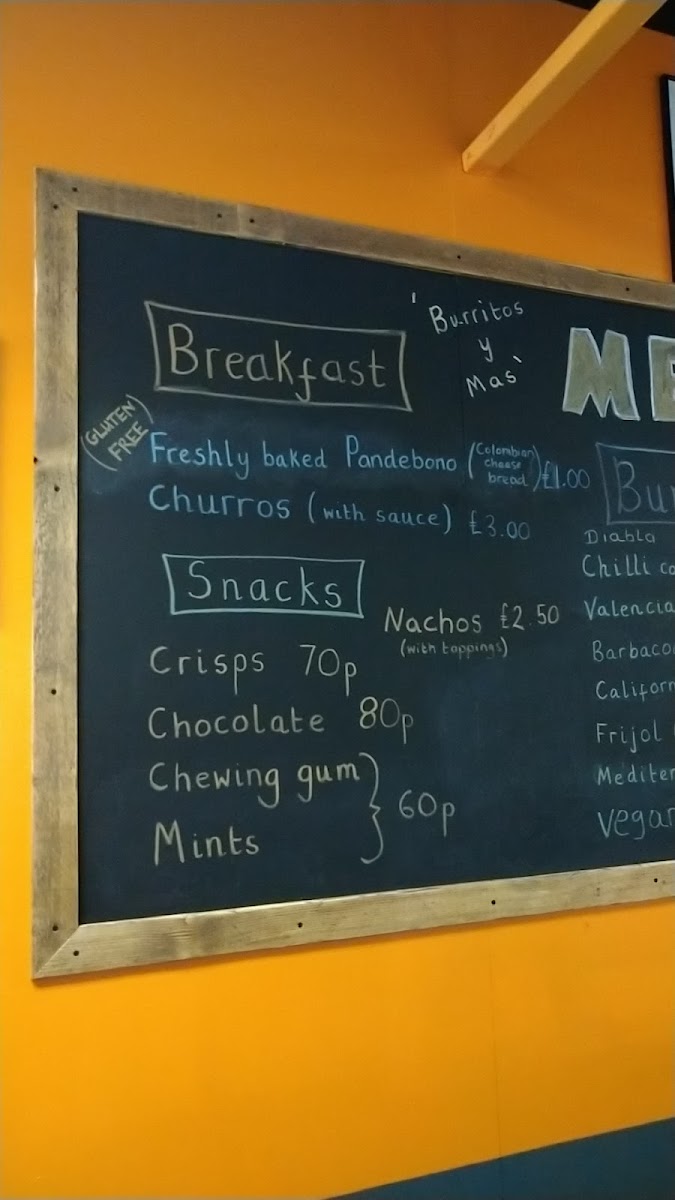 'Burritos
y
Mas'
ME
Breakfast
(GLUTEN
FREE)
Freshly baked Pandebono (Colombian cheese bread) £1.00
Churros (with sauce) £3.00
Snacks
Nachos £2.50
(with toppings)
Crisps 70p
Chocolate 80p
Chewing gum
Mints
60p
Bur
Diabla
Chilli co
Valencia
Barbaco
Califor
Frijol
Mediter
Vegan